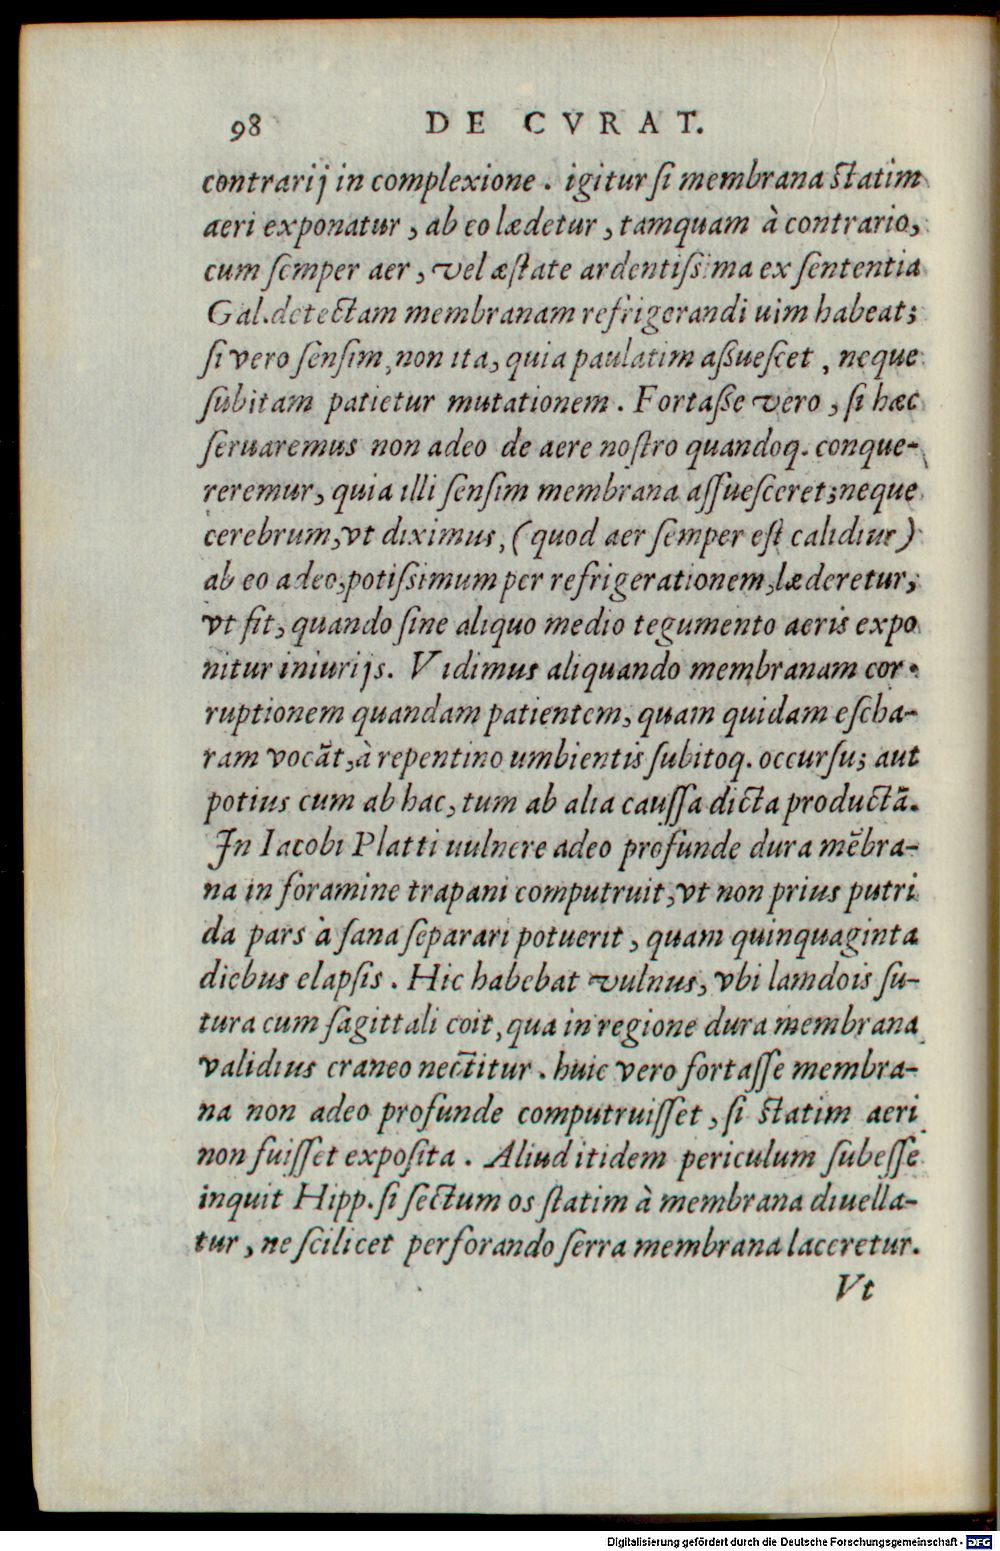 98 DE CVRAT.
contrarij in complexione. igitur ſi membrana ſtatim
aeri exponatur, ab eo lædetur, tamquam à contrario,
cum ſemper aer, vel æſtate ardentiſsima ex ſententia
Gal. detectam membranam refrigerandi uim habeat;
ſi vero ſenſim, non ita, quia paulatim aßueſcet, neque
ſubitam patietur mutationem. Fortaße vero, ſi hæc
ſeruaremus non adeo de aere noſtro quandoq. conque-
reremur, quia illi ſenſim membrana aſſueſceret; neque
cerebrum, vt diximus, (quod aer ſemper eſt calidius)
ab eo adeo, potiſsimum per refrigerationem, læderetur,
vt fit, quando ſine aliquo medio tegumento aeris expo
nitur iniurijs. Vidimus aliquando membranam cor-
ruptionem quandam patientem, quam quidam eſcha-
ram vocāt, à repentino umbientis ſubitoq. occurſu; aut
potius cum ab hac, tum ab alia cauſſa dicta productā.
In Iacobi Platti uulnere adeo profunde dura mēbra-
na in foramine trapani computruit, vt non prius putri
da pars à ſana ſeparari potuerit, quam quinquaginta
diebus elapſis. Hic habebat vulnus, vbi lamdois ſu-
tura cum ſagittali coit, qua in regione dura membrana
validius craneo nectitur. huic vero fortaſſe membra-
na non adeo profunde computruiſſet, ſi ſtatim aeri
non fuiſſet expoſita. Aliud itidem periculum ſubeſſe
inquit Hipp. ſi ſectum os ſtatim à membrana diuella-
tur, ne ſcilicet perforando ſerra membrana laceretur.
Vt
Digitalisierung gefördert durch die Deutsche Forschungsgemeinschaft - DFG